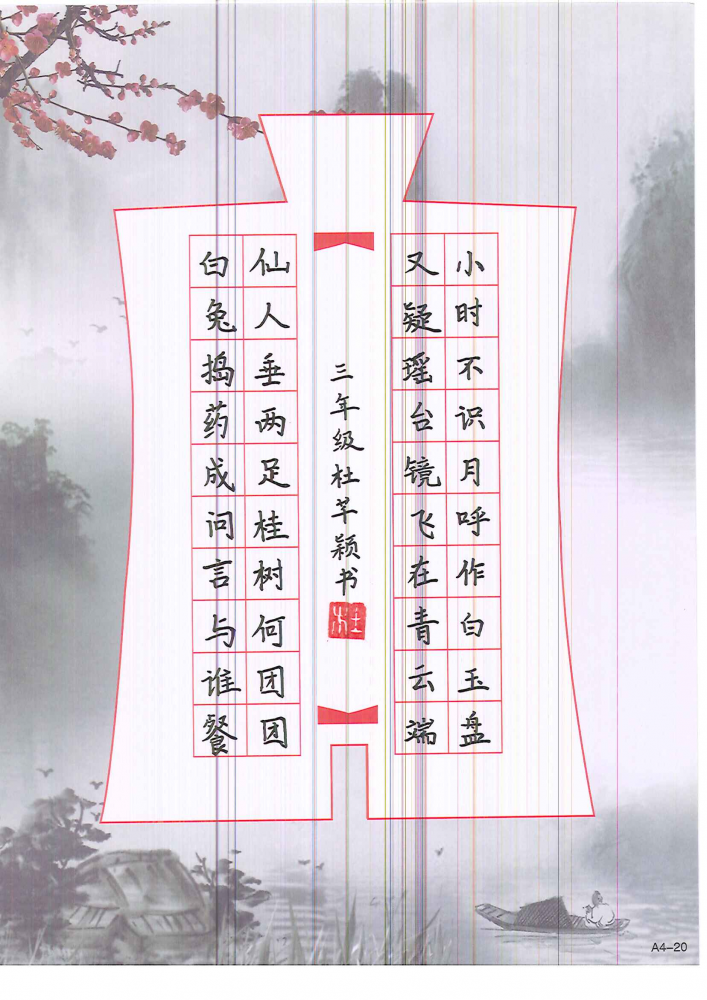 小时不识月呼作白玉盘
又疑瑶台镜飞在青云端
三年级杜芊颖书
杜
仙人垂两足桂树何团团
白兔捣药成问言与谁餐
A4-20